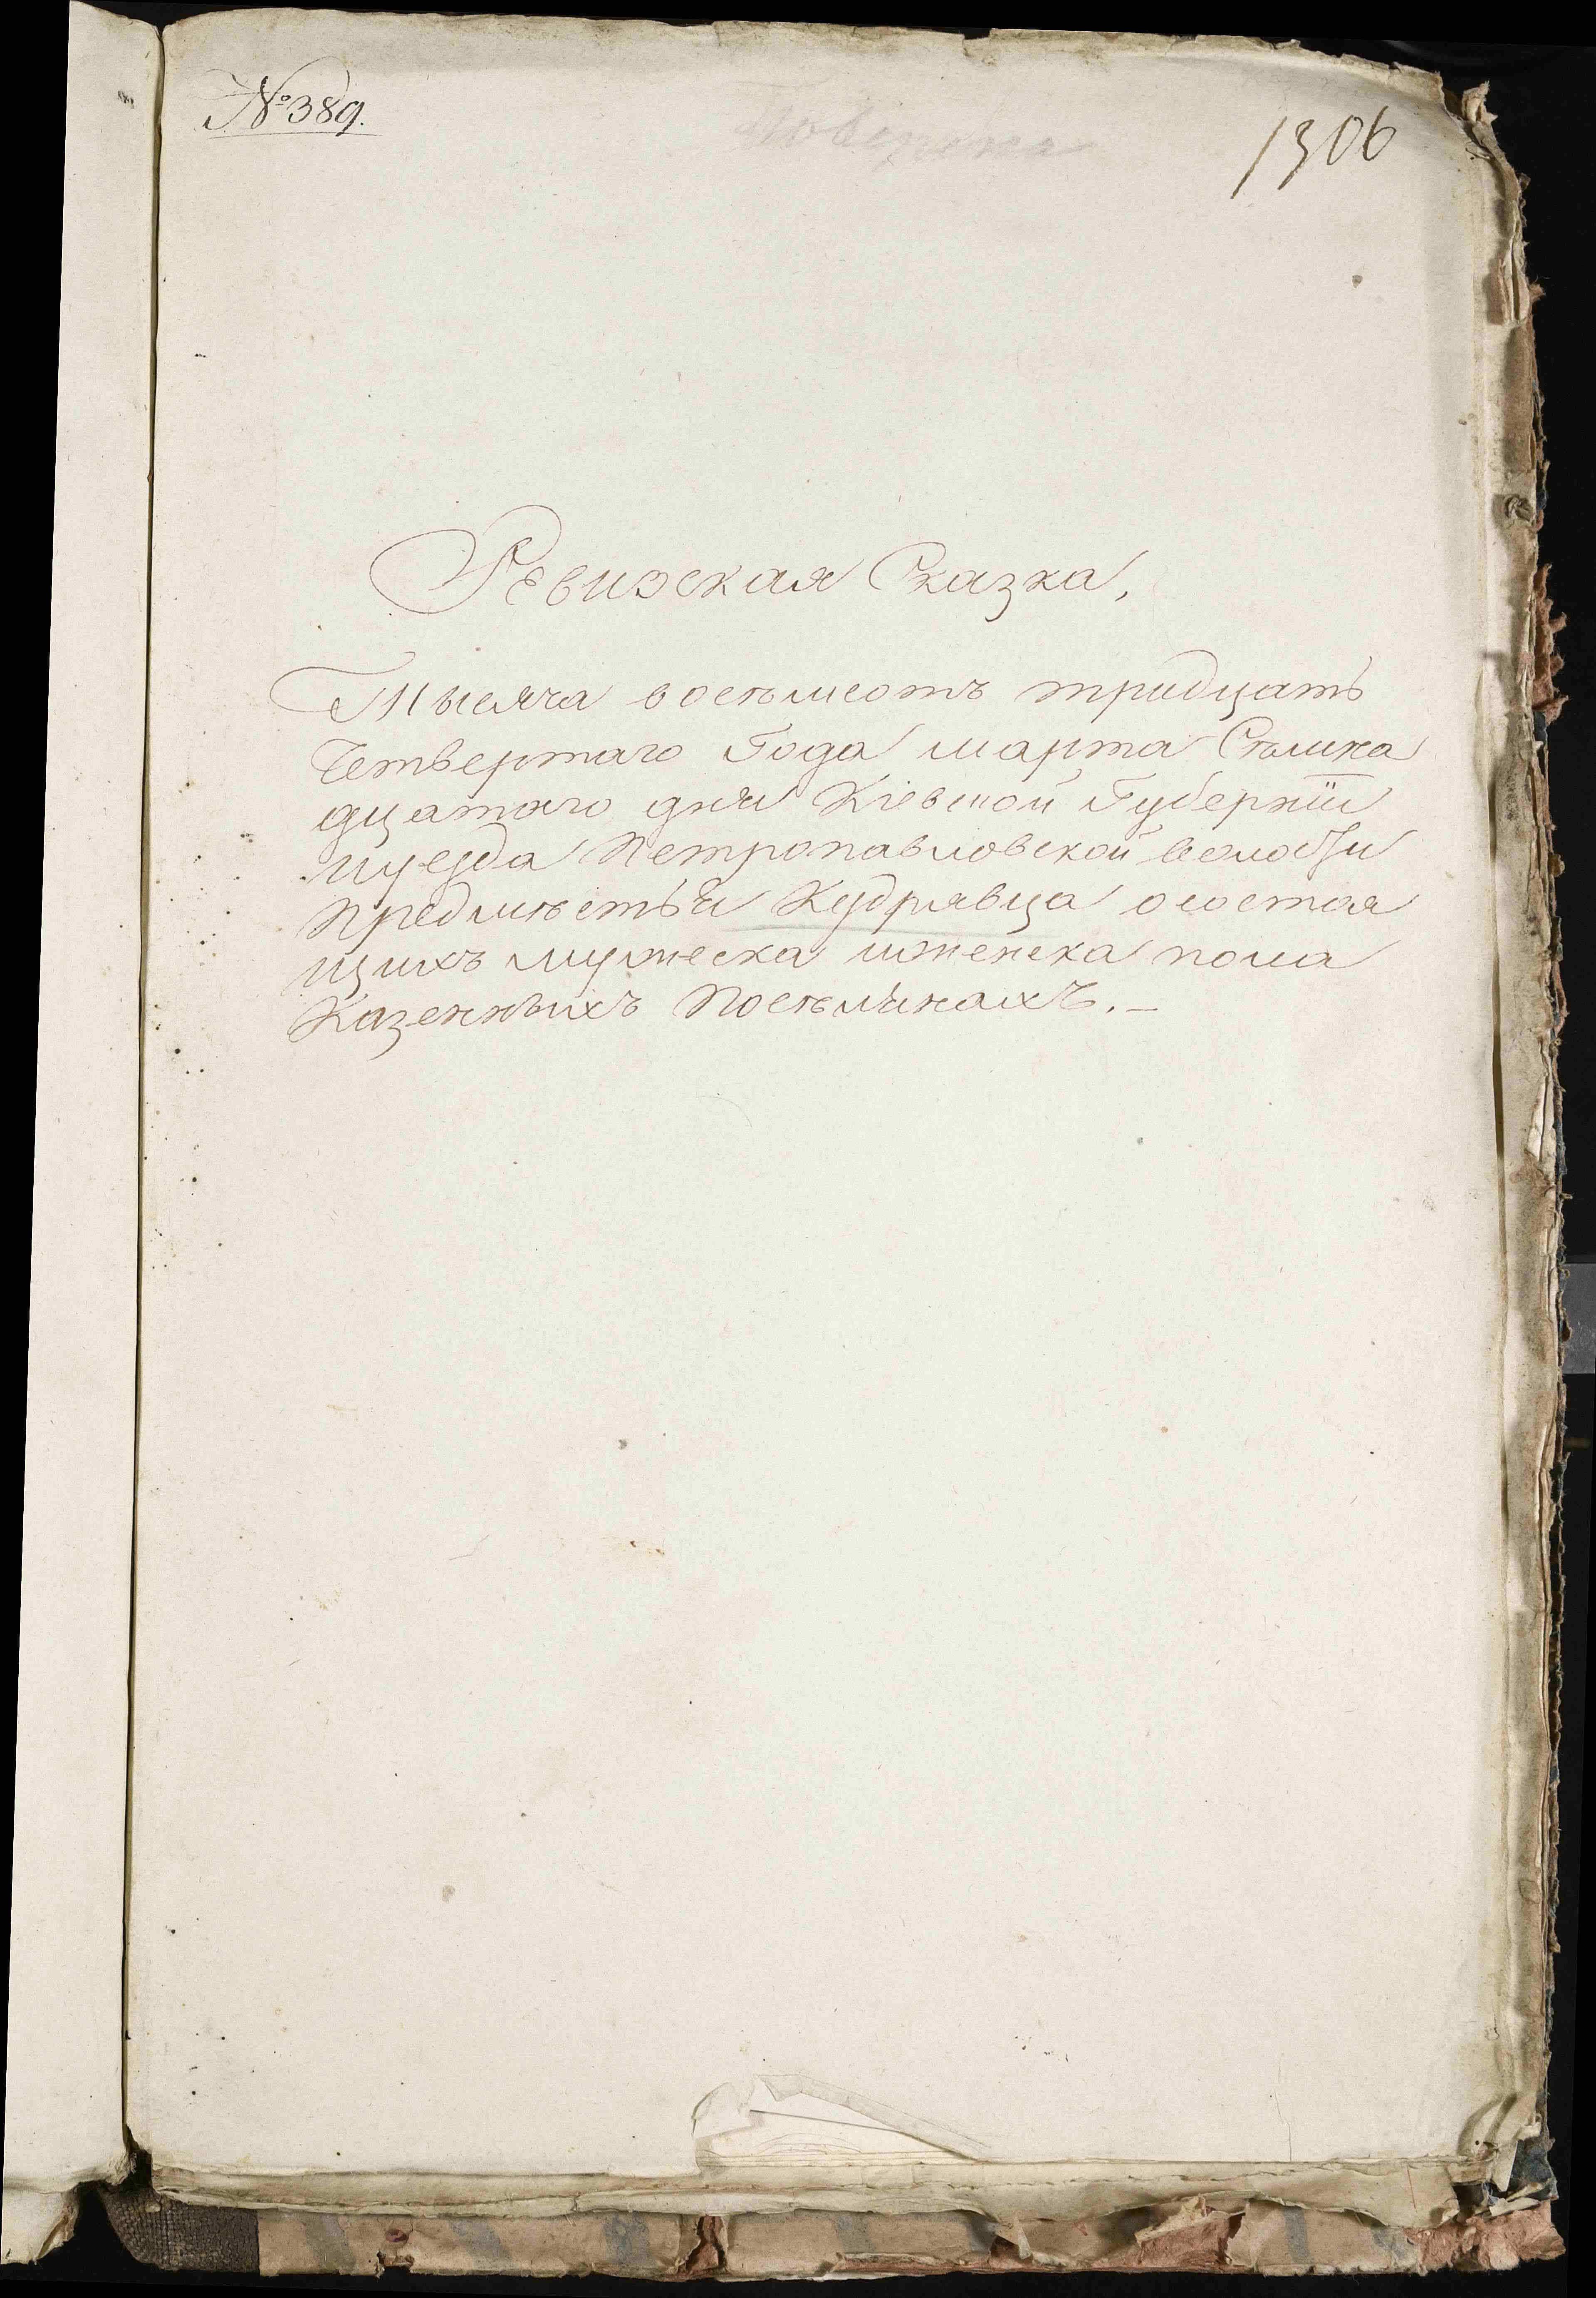 № 389.
1306
Ревизская Сказка,
Тысяча восемьсотъ тридцать
Четвертаго Года марта Сѣмна
дцатаго дня Кіевской Губерніи
иуезда Петропавловской волости
Предмѣстья Кудрявца осостоя
щихъ мужеска иженска пола
Казенныхъ Посѣлянахъ. —